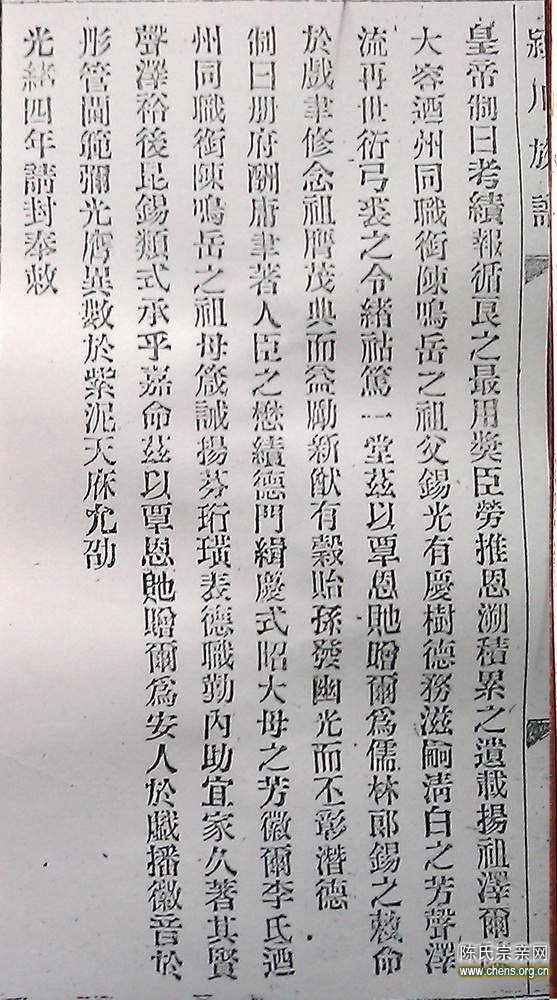 潁川族譜
皇帝制曰考績報循良之最用獎臣勞推恩溯積累之遺載揚祖澤爾陳
大容迺州同職銜陳鳴岳之祖父錫光有慶樹德務滋嗣清白之芳聲澤
流再世衍弓裘之令緒祜篤一堂茲以覃恩貤贈爾為儒林郎錫之敕命
於戲聿修念祖膺茂典而益勵新猷有穀貽孫發幽光而丕彰潛德
制曰冊府酬庸聿著人臣之懋績德門緝慶式昭大母之芳徽爾李氏迺
州同職銜陳鳴岳之祖母箴誡揚芬珩璜表德職勤內助宜家久著其賢
聲澤裕後昆錫類式承乎嘉命茲以覃恩貤贈爾為安人於戲播徽音於
彤管閫範彌光膺異數於紫泥天庥允劭
光緒四年請封奉敕
陈氏宗亲网
www.chens.org.cn